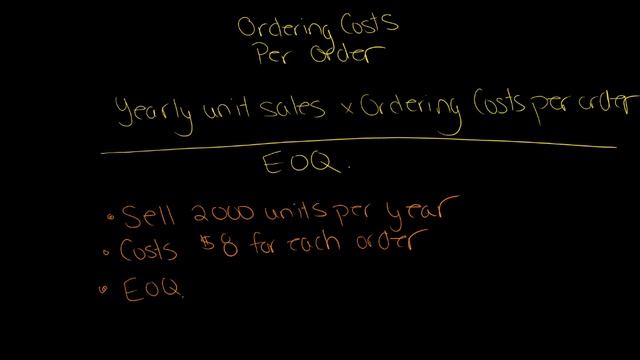 Ordering Costs
Per Order
Yearly unit sales x Ordering Costs per order
EOQ.
• Sell 2000 units per year
• Costs $8 for each order
• EOQ.